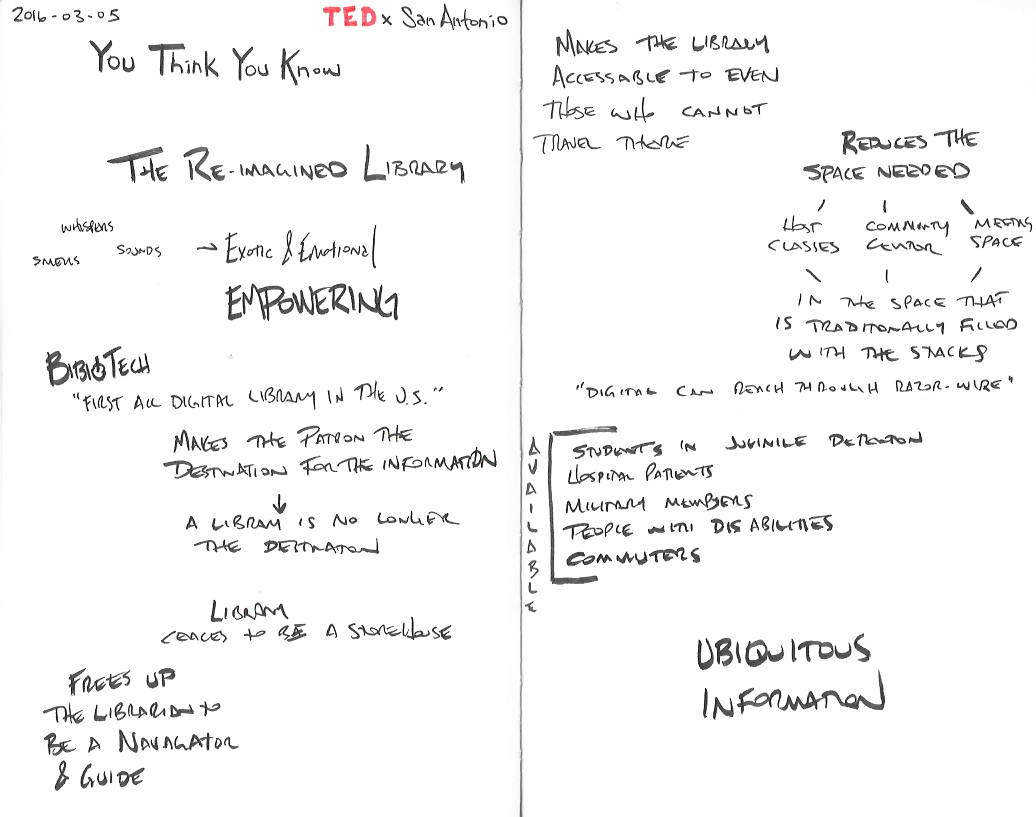 2016-03-05
TEDx San Antonio
You Think You Know
The Re-imagined Library
whispers
smells
sounds
→ Exotic & Emotional
EMPOWERING
BibioTech
"First all digital library in the U.S."
Makes the patron the
destination for the information
↓
A library is no longer
the destination
Library
ceaces to be a storehouse
Frees up
the librarian to
be a navagator
& guide
Makes the library
accessable to even
those who cannot
travel there
Reduces the
space needed
Host
classes
Community
center
Meeting
space
in the space that
is traditonally filled
with the stacks
"Digital can reach through razor-wire"
AVAILABLE
Students in juvinile detention
Hospital patients
Military members
People with disabilities
Commuters
UBIQUITOUS
INFORMATION